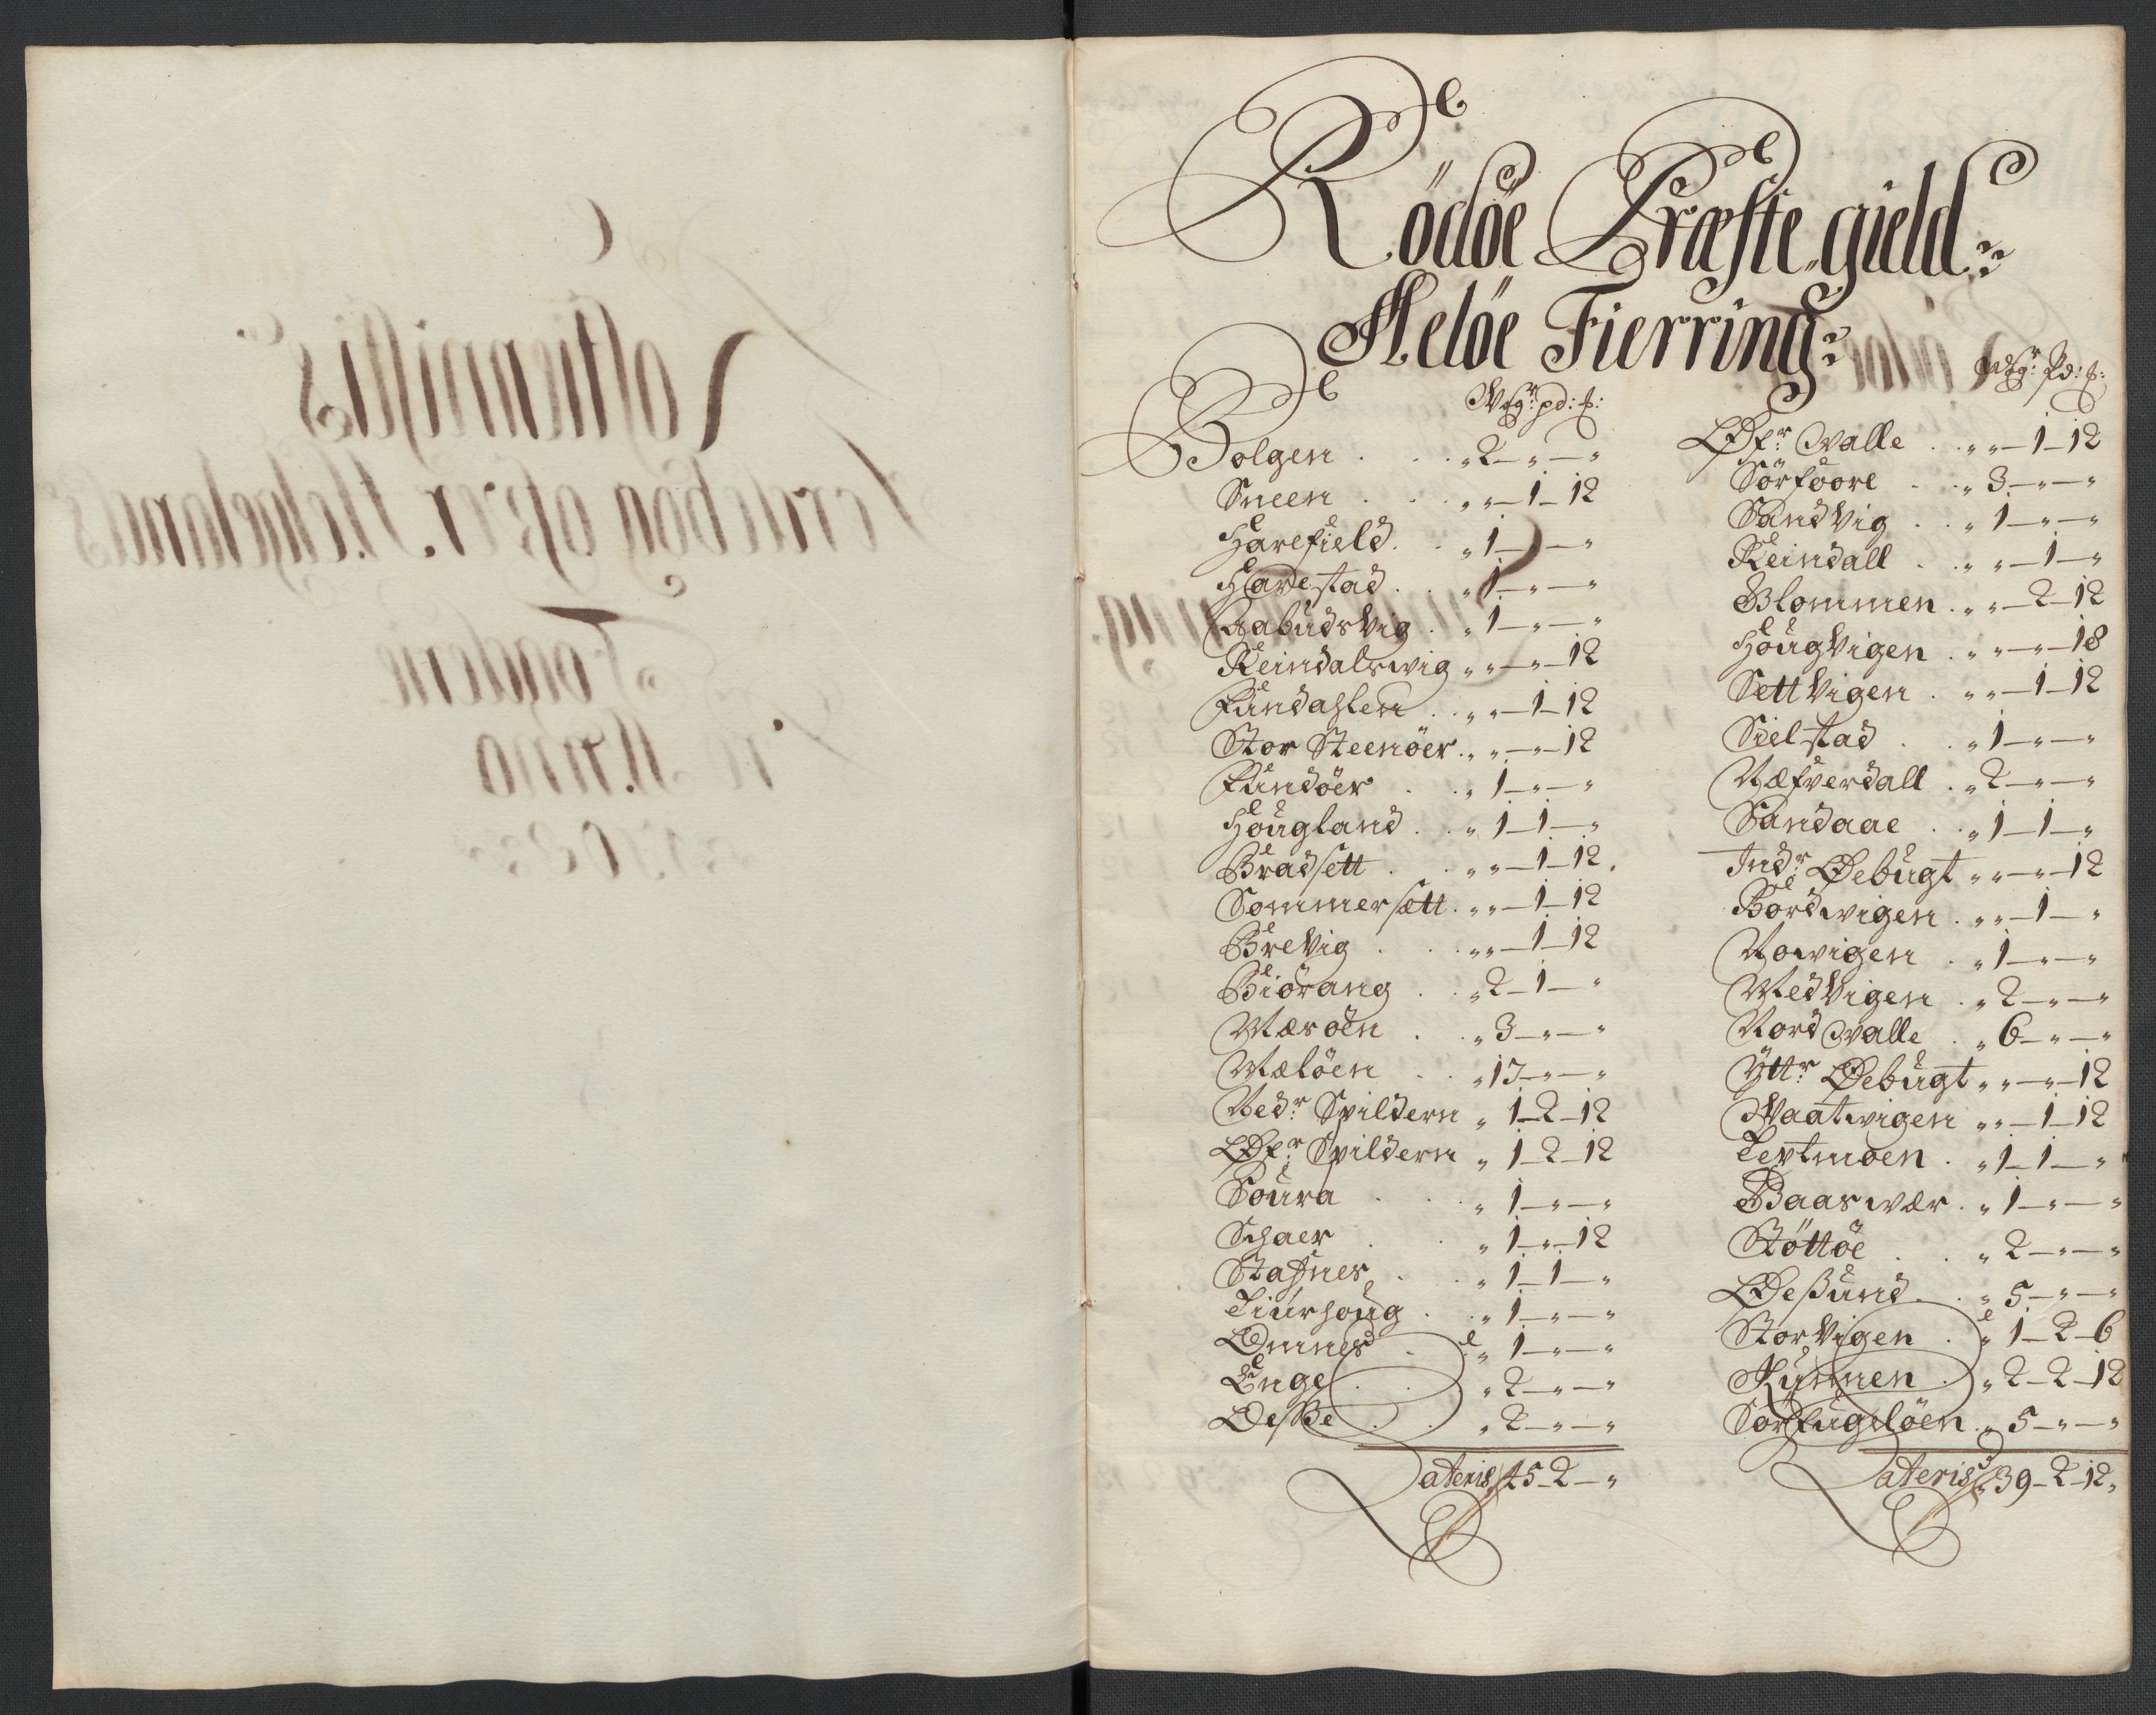 Rödöe Præste gield
Meløe Fierring:
Wogr: pd: f:
Bolgen . . . „ 2 — „ — „
Sneen . . „ „ — 1 — 12
Harefield . . „ 1 — „ — „
Harestad . . „ 1 — „ — „
Aabudsvig . „ 1 — „ — „
Reindalswig „ „ — „ — 12
Fundahlen . „ „ — 1 — 12
Stor Steenöer . „ „ — „ — 12
Fundöer . . „ 1 — „ — „
Hougland . . „ 1 — 1 — „
Bradsett . . „ „ — 1 — 12
Sommersætt . „ „ — 1 — 12
Brevig . . „ „ — 1 — 12
Biörang . . „ 2 — 1 — „
Mæsöen . . „ 3 — „ — „
Mælöen . . „ 17 — „ — „
Nedr Spildern „ 1 — 2 — 12
Øfr: Spildern „ 1 — 2 — 12
Soura . . „ 1 — „ — „
Schaer . . „ 1 — „ — 12
Stafnes . . „ 1 — 1 — „
Tiurhoug . . „ 1 — „ — „
Omnes . . „ 1 — „ — „
Enge . . „ 2 — „ — „
. . „ 2 — „ — „
Lateris 45 — 2 — „
Wogr: Pd: f:
Øfr: Walle . . „ „ — 1 — 12
Sörfoore . . „ 3 — „ — „
Sandvig . . „ 1 — „ — „
Reindall . . „ „ — 1 — „
Blommen . „ „ — 2 — 12
Hougvigen . „ „ — „ — 18
Settvigen . „ „ — 1 — 12
Sielstad . . „ 1 — „ — „
Næfverdall . „ 2 — „ — „
Sandaae . . „ 1 — 1 — „
Indr: Øebugt „ „ — „ — 12
Bordwigen . „ „ — 1 — „
Nowigen . „ 1 — „ — „
Medvigen . „ 2 — „ — „
Nord Walle . „ 6 — „ — „
Yttr: Øebugt „ „ — „ — 12
Waatwigen „ „ — 1 — 12
Textmoen . „ 1 — 1 — „
Baaswær . „ 1 — „ — „
Støttöe . . „ 2 — „ — „
Øesund . . „ 5 — „ — „
Storvigen . „ 1 — 2 — 6
Kunnen . „ 2 — 2 — 12
Sörfugelöen . „ 5 — „ — „
Lateris 39 — 2 — 12